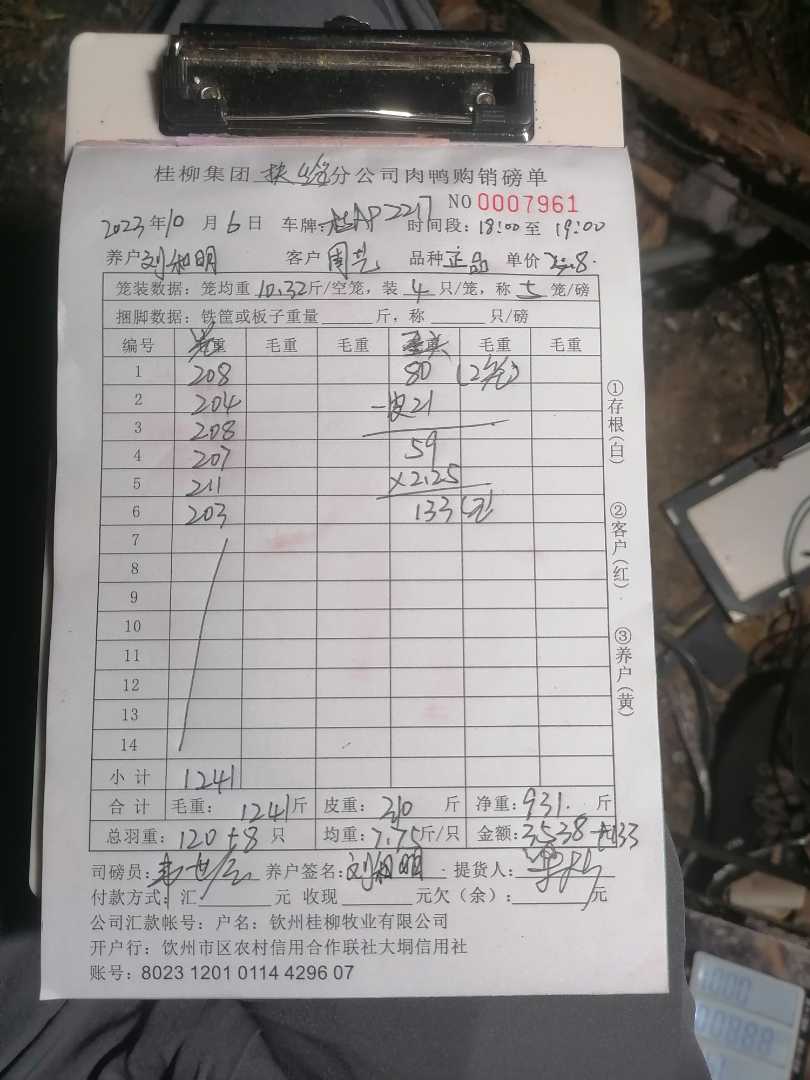 桂柳集团 分公司肉鸭购销磅单
NO 0007961
2023年10月6日 车牌:桂AP2217 时间段:18:00至19:00
养户刘和明 客户周 品种正品 单价 3.8
笼装数据:笼均重10.32斤/空笼,装4只/笼,称5笼/磅
捆脚数据:铁筐或板子重量 斤,称 只/磅
编号 重 毛重 毛重 重 毛重 毛重
1 208 80 (2笼)
2 204 -皮21
3 208
4 207 59
5 211 ×2.25
6 203 133(元)
7
8
9
10
11
12
13
14
小计 1241
合计 毛重:1241斤 皮重:310斤 净重:931.斤
总羽重:120+8只 均重:7.75斤/只 金额:3538 133
司磅员: 养户签名:刘和明 提货人:
付款方式:汇 元 收现 元欠(余): 元
公司汇款帐号:户名:钦州桂柳牧业有限公司
开户行:钦州市区农村信用合作联社大垌信用社
账号:8023 1201 0114 4296 07
①存根(白)
②客户(红)
③养户(黄)